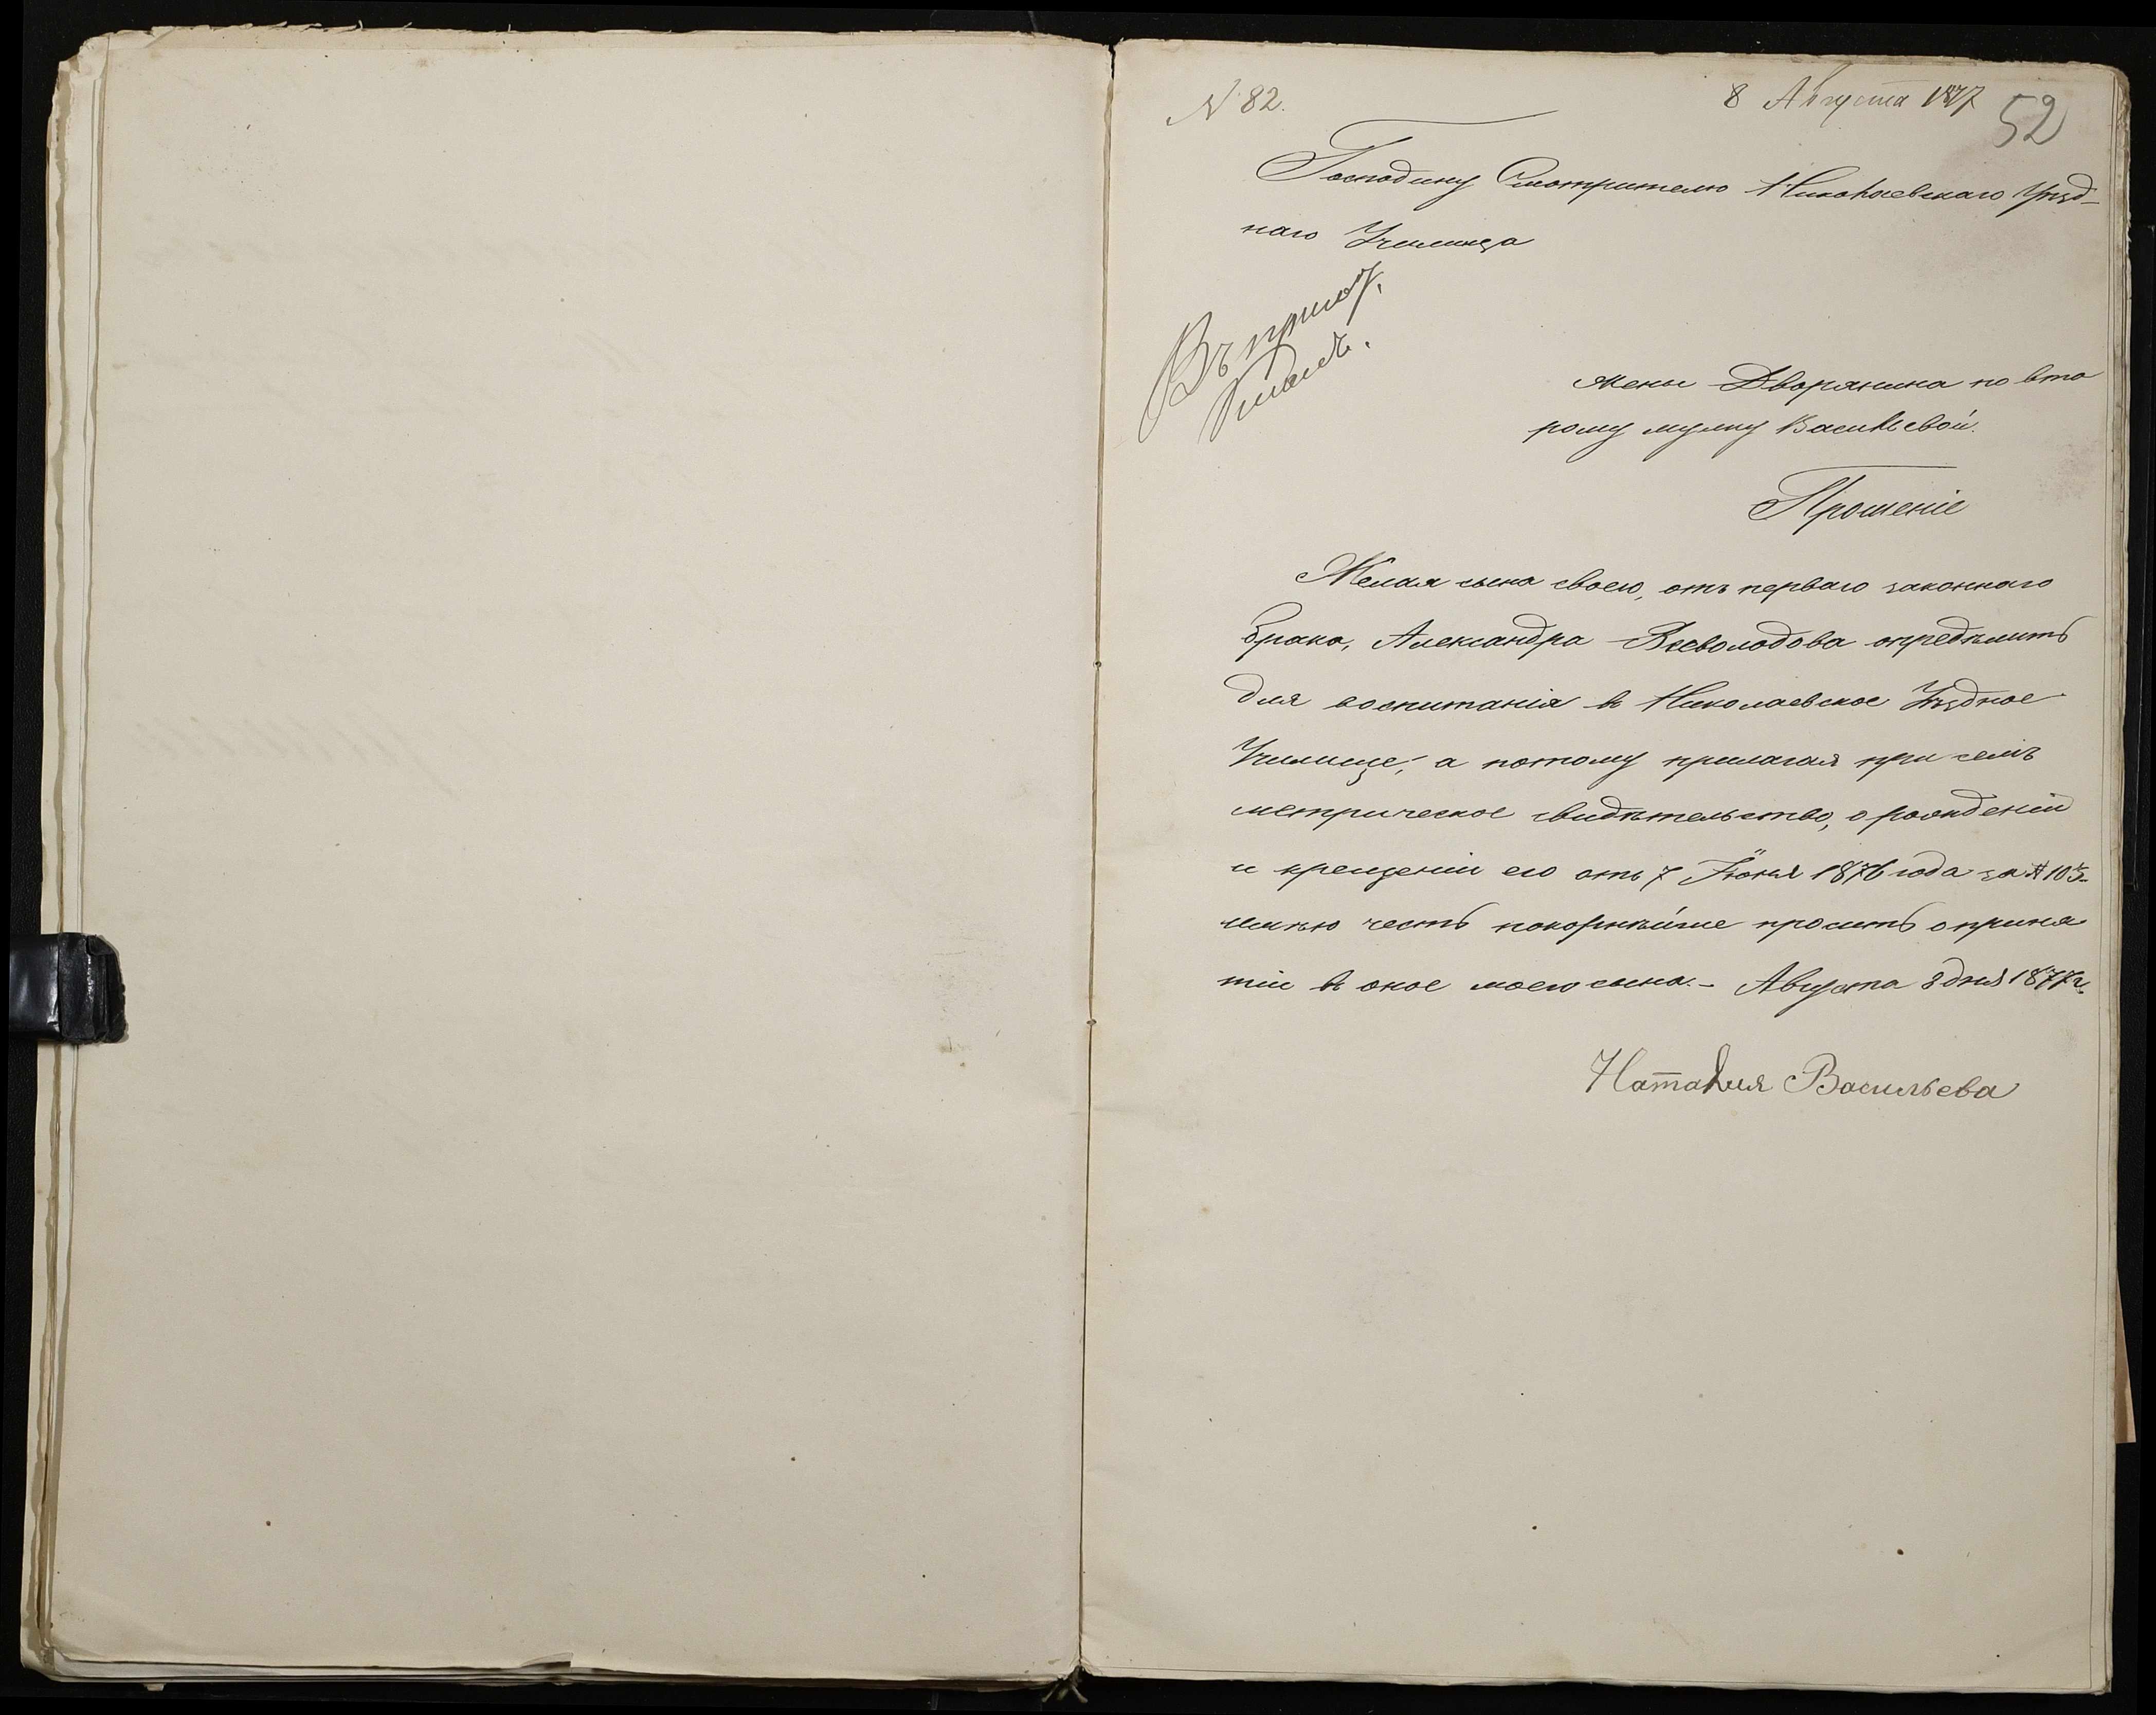 N 82.
8 Августа 1877
52
Господину Смотрителю Николаевскаго Уѣзд-
наго Училища
Въ пригот.
классъ.
жены Дворянина по вто
рому мужу Васильевой.
Прошеніе
Желая сына своего, отъ перваго законнаго
брака, Александра Всеволодова опредѣлить
для воспитанія въ Николаевское Уѣздное
Училище; а потому прилагая при семъ
метрическое свидѣтельство, о рожденіи
и крещеніи его отъ 7 Іюня 1876 года за № 105-
имѣю честь покорнѣйше просить о приня
тіи въ оное моего сына. - Августа 8 дня 1877 г.
Наталия Васильева